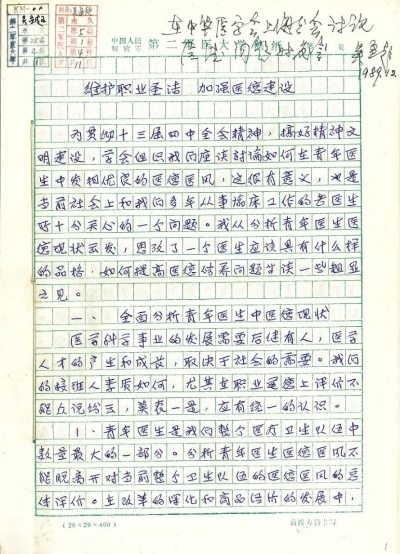 在中华医学会上海分会讨论
1989.12
中国人民解放军 第二军医大学 稿纸 第 页
维护职业圣洁 加强医德建设
为贯彻十三届四中全会精神,搞好精神文
明建设,学会组织我们座谈讨论如何在青年医
生中发扬优良的医德医风,这很有意义,也是
当前社会上和我们多年从事临床工作的老医生
十分关心的一个问题。我从分析青年医生医
德现状出发,思考了一个医生应该具有什么样
的品格,如何提高医德修养问题谈一些粗显
之见。
一、全面分析青年医生中医德现状
医学科学事业的发展需要后继有人,医学
人才的产生和成长,取决于社会的需要。我们
的接班人素质如何,尤其在职业道德上评价不
能众说纷云,莫衷一是,应有统一的认识。
1.青年医生是我们整个医疗卫生队伍中
数量最大的一部分。分析青年医生医德医风不
能脱离开对当前整个卫生队伍的医德医风的总
体评价。在改革的深化和商品经济的发展中,
(20×20=400)
1